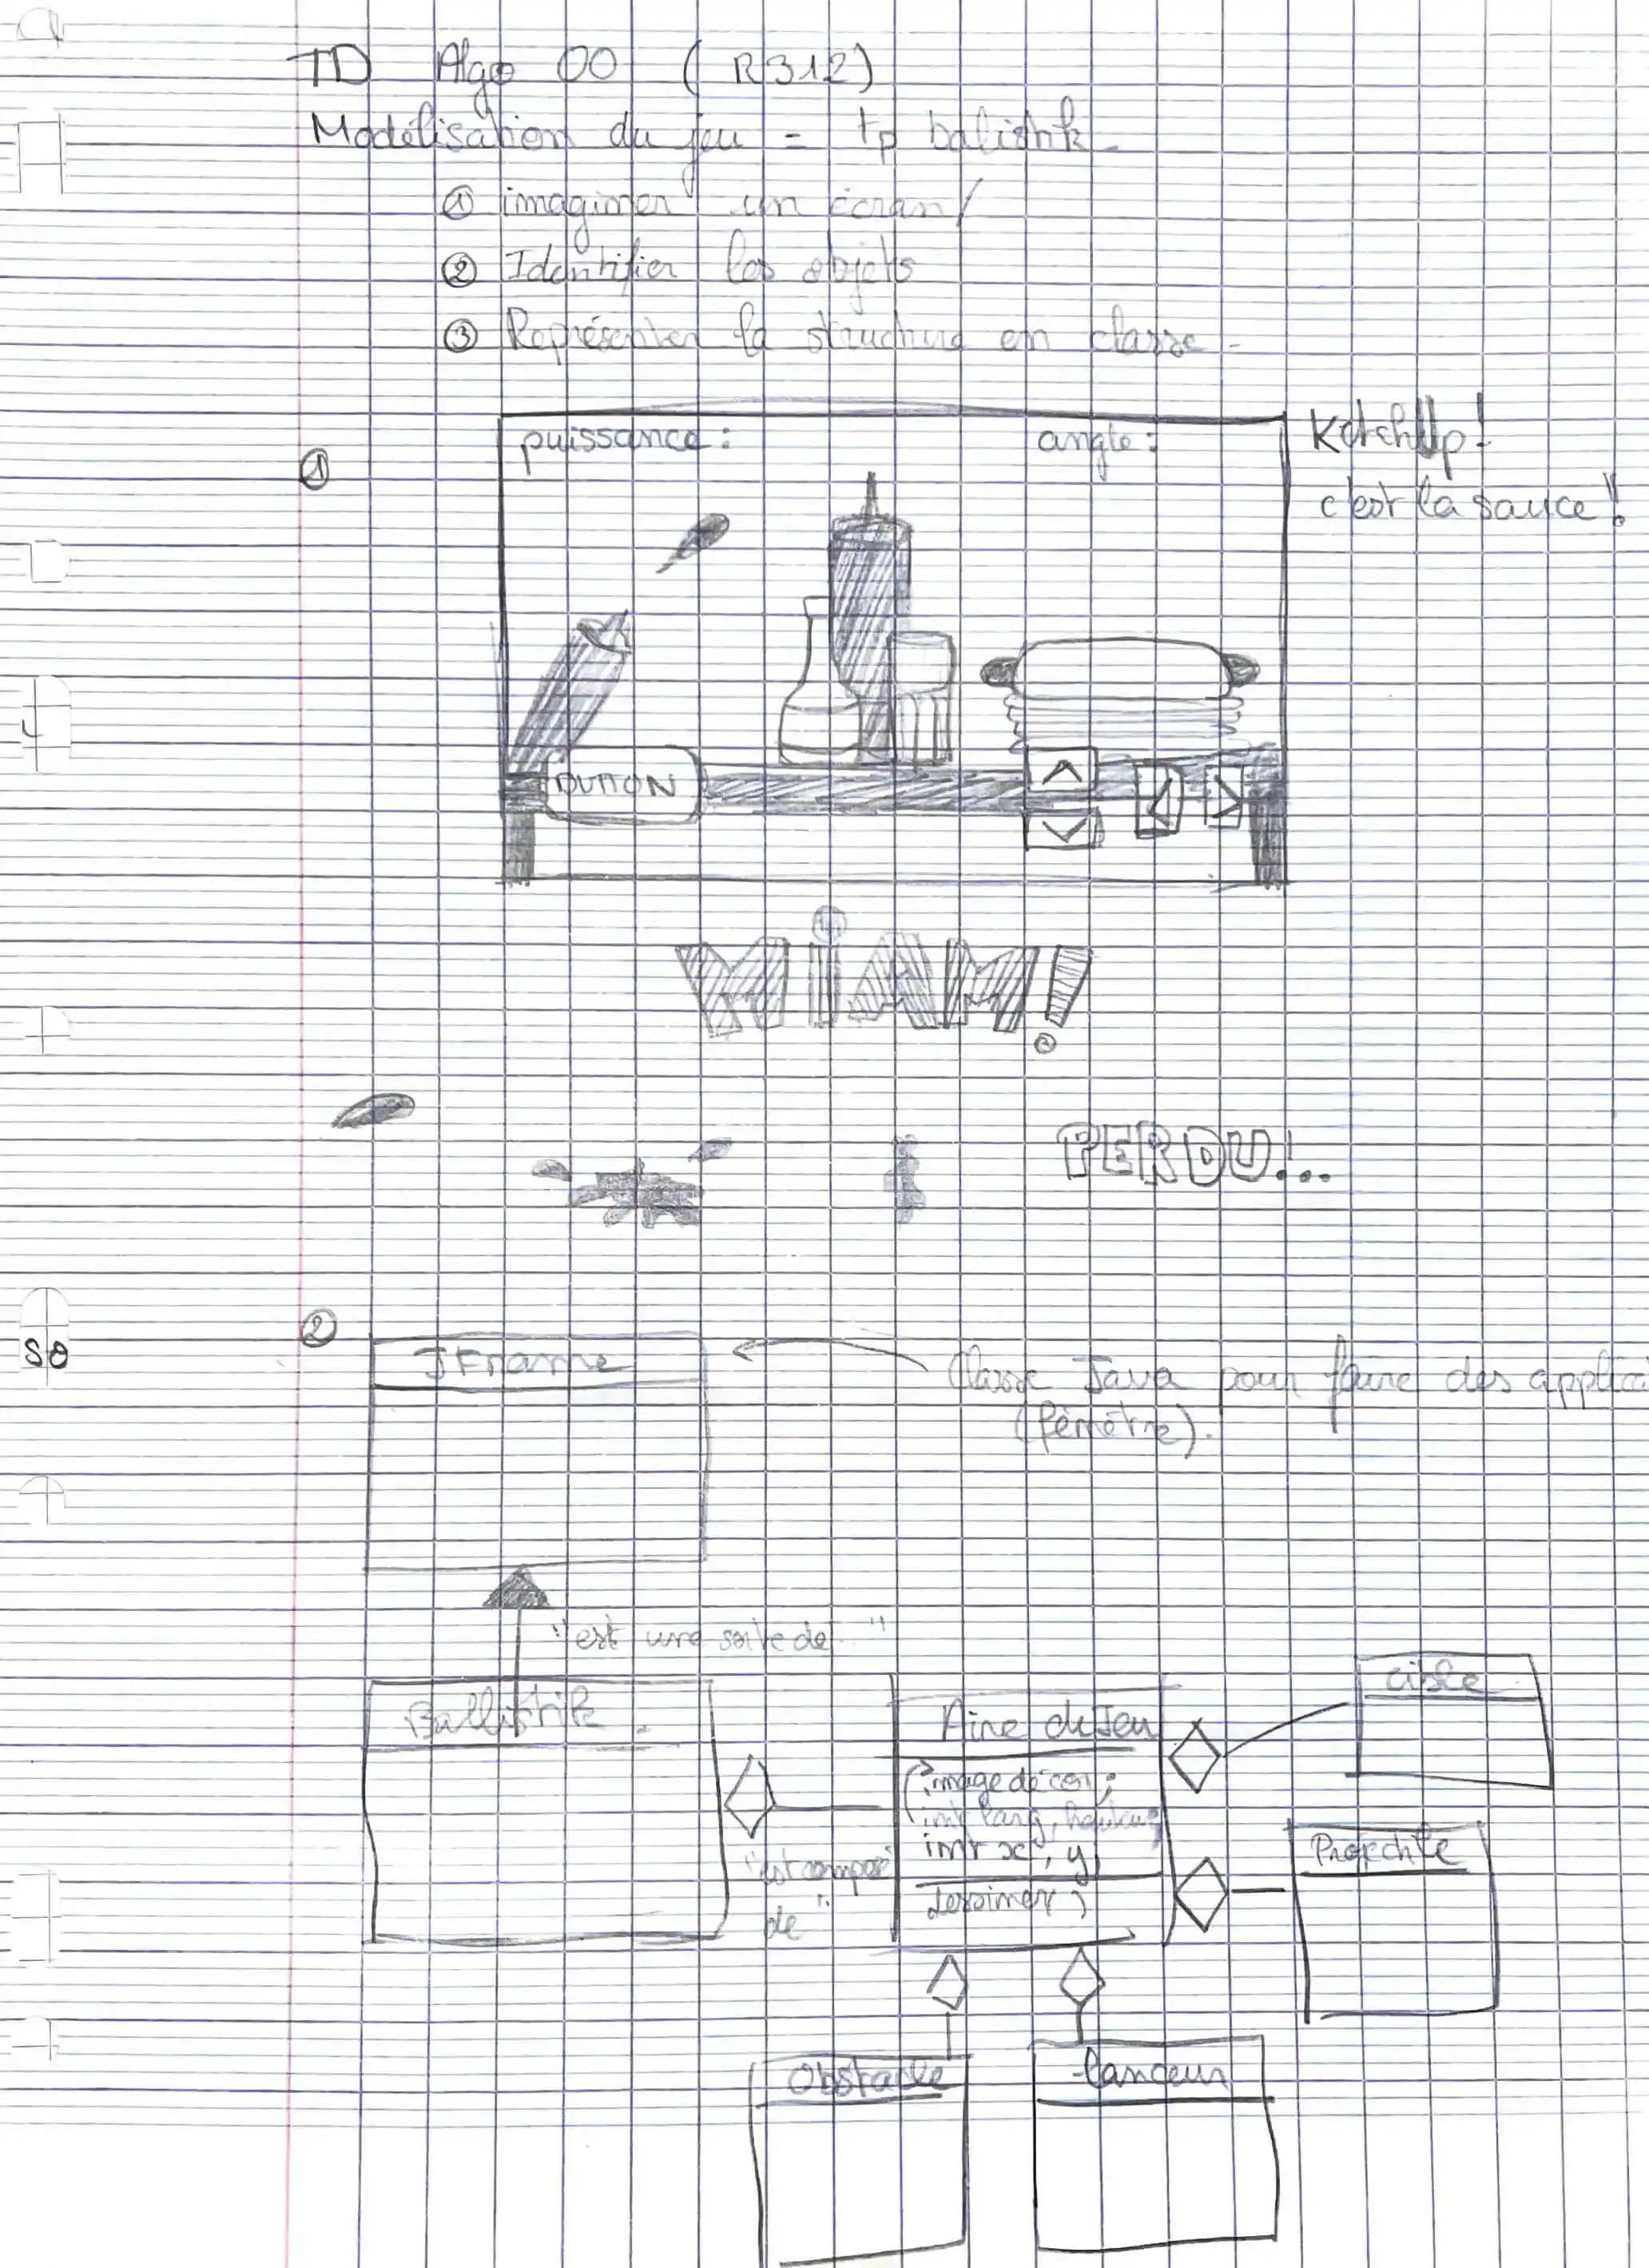 TD Algo OO (R312)
Modélisation du jeu = tp balistik
① imaginer un écran/
② Identifier les objets
③ Représenter la structure en classe -
①
puissance : angle :
Ketchup !
c'est la sauce !!
BUTTON
MiAM!
PERDU!...
②
JFrame
Classe Java pour faire des applica
(fenêtre).
"est une sorte de "
Ballistik
Aire de Jeu
image décor;
int larg, hauteur;
int x, y
dessiner
"est composé
de"
cible
Projectile
Obstacle
lanceur
so